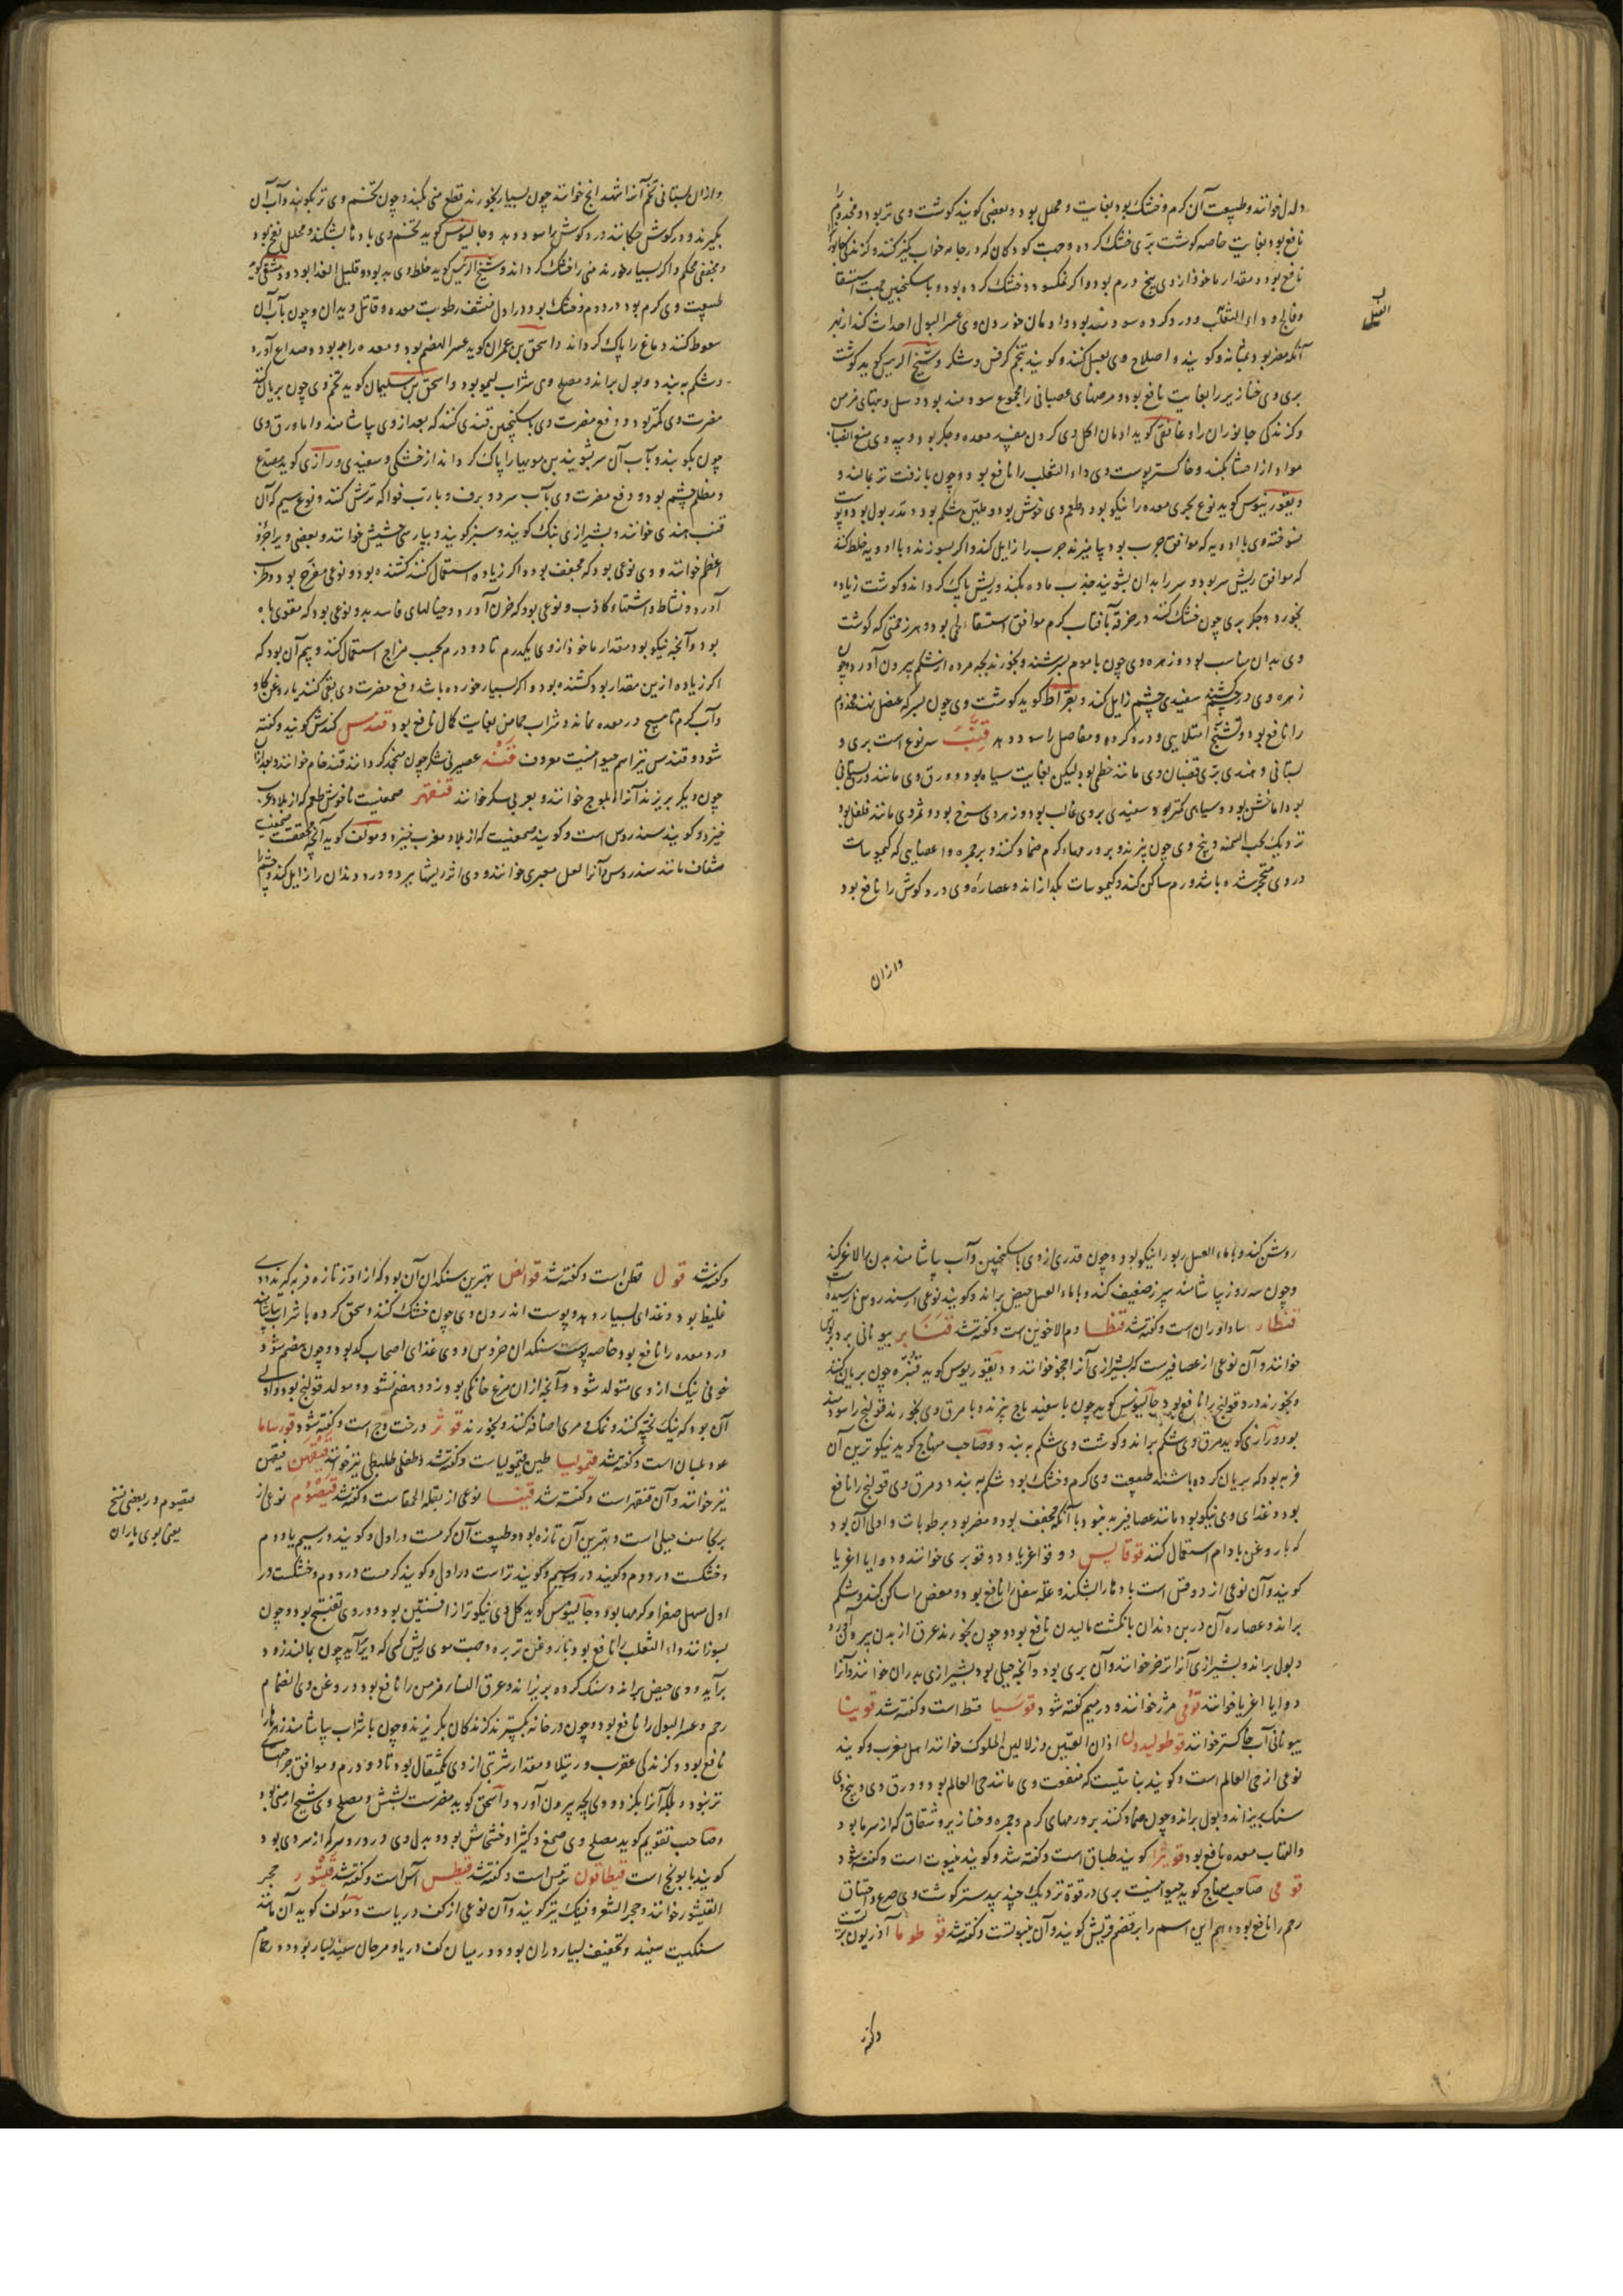 دلدل خوانند و طبیعت آن گرم و خشک بود بغایت و محلل بود و بعضی گویند گوشت وی تر بود و مجذوم را
نافع بود بغایت خاصه گوشت بری خشک کرده و جهت کودکان که در جامه خواب کمیز کنند و گزندگی جانوران
نافع بود و مقدار ماخوذ از وی پنج درم بود و اگر نمکسود و خشک کرده بود و با سکنجبین جهت استسقا
و فالج و داء الثعلب و درد گرده سودمند بود و ادمان خوردن وی عسر البول احداث کند از بهر
آنکه مضر بود بمثانه و گویند و اصلاح وی بعسل کنند و گویند بتخم کرفس و شکر و شیخ الرئیس گوید گوشت
بری وی خنازیر را بغایت نافع بود و مرضهای عصبانی را مجموع سودمند بود و سل و تبهای مزمن
و گزندگی جانوران را و غافقی گوید ادمان اکل وی کردن مفسد معده و جگر بود و پیه وی منع انصباب
مواد از احشا بکند و خاکستر پوست وی داء الثعلب را نافع بود و چون با زفت تر بمالند و
دیسقوریدوس گوید نوع بحری معده را نیکو بود و طعم وی خوش بود و ملین شکم بود و مدر بول بود و پوست
سوخته وی با ادویه که موافق جرب بود بیامیزند جرب را زایل کند و اگر بسوزند و با ادویه خلط کنند
که موافق ریش سر بود و سر را بدان بشویند جذب ماده بکند و ریش پاک گرداند و گوشت زیاده
بخورد و جگر بری چون خشک کنند در خرقه بآفتاب گرم موافق استسقاء لحمی بود و هر زحمتی که گوشت
وی بدان مناسب بود و زهره وی چون با موم بسرشند و بخورند بچه مرده از شکم بیرون آورد و چون
زهره وی در چشم کشند سفیدی چشم زایل کند و بقراط گوید گوشت وی چون بسرکه عنصل بپزند مجذوم
را نافع بود و تشنج امتلایی و درد گرده و مفاصل را سود دهد قنب سه نوع است بری و
بستانی و هندی بری قضبان وی مانند خطمی بود لیکن بغایت سیاه بود و ورق وی مانند ورق بستانی
بود اما خشن بود و سیاهی کمتر بود سفیدی بر وی غالب بود و زهر وی سرخ بود و ثمر وی مانند فلفل بود
نزدیک بحب السمنه و بیخ وی چون بپزند و بر ورمهاء گرم ضماد کنند و بر جمره و اعصابی که کیموسات
در وی متحجر شده باشد ورم ساکن کند و کیموسات بگدازاند و عصاره وی درد گوش را نافع بود
وازان
الفیل
وازان بستانی تخم آنرا شهدانج خوانند چون بسیار بخورند قطع منی بکند و چون تخم وی تر بکوبند و آب آن
بگیرند و در گوش چکانند درد گوش را سود دهد و جالینوس گوید تخم وی بادها بشکند و محلل نفخ بود
و مجففی محکم و اگر بسیار خورند منی را خشک گرداند و شیخ الرئیس گوید خلط وی بد بود و قلیل الغذا بود و دمشقی گوید
طبیعت وی گرم بود در دوم و خشک بود در اول منشف رطوبت معده و قاتل دیدان و چون بآب آن
سعوط کنند دماغ را پاک گرداند و اسحق بن عمران گوید عسر الهضم بود و معده را بد بود و صداع آورد
و شکم به بندد و بول براند و مصلح وی شراب لیمو بود و اسحق بن سلیمان گوید تخم وی چون بریان کنند
مضرت وی کمتر بود و دفع مضرت وی بسکنجبین قندی کنند که بعد از وی بیاشامند و اما ورق وی
چون بکوبند و بآب آن سر بشویند بن مویها را پاک گرداند از خشکی و سفیدی و رازی گوید مصدع
و مظلم چشم بود و دفع مضرت وی بآب سرد و برف و با رب فواکه ترش کنند و نوع سیم که آن
قنب هندی خوانند و بشیرازی بنگ گویند و سبز گویند و بپارسی حشیش خوانند و بعضی ویرا جزو
اعظم خوانند و وی نوعی بود که مجفف بود و اگر زیاده استعمال کنند کشنده بود و نوعی مفرح بود و طرب
آورد و نشاط و اشتهاء کاذب و نوعی بود که حزن آورد و خیالهای فاسد بد و نوعی بود که مقوی باه
بود و آنچه نیکو بود مقدار ماخوذ از وی یکدرم تا دو درم بحسب مزاج استعمال کنند و بیم آن بود که
اگر زیاده ازین مقدار بود کشنده بود و اگر بسیار خورده باشد دفع مضرت وی بقی کنند با روغن گاو
و آب گرم تا هیچ در معده نماند و شراب حماض بغایت کمال نافع بود قندس کندش گویند و گفته
شود و قندس نیز اسم حیوانیست معروف قند عصیر نی شکر چون منجمد گردانند قند خام خوانند و بعد از آن
چون دیگر بریزند آنرا ابلوج خوانند و بعربی سکر خوانند قنقهر صمغیست ناخوش طعم که از بلاد عرب
خیزد و گویند سندروس است و گویند صمغیست که از بلاد مغرب خیزد و مولف گوید آنچه محققست صمغیست
شفاف مانند سندروس و آنرا لعل معبری خوانند و وی اثر ریشها ببرد و درد دندان را زایل کند و چشم را
روشن کند و با ماء العسل ربو را نیکو بود و چون قدری از وی با سکنجبین و آب بیاشامند بدن را لاغر کند
و چون سه روز بیاشامند سپرز ضعیف کند و با ماء العسل حیض براند و گویند نوعی از سندروس نارسیده است
قنطار ساداوران است و گفته شد قنطا دم الاخوین است و گفته شد قنابر بیونانی
خوانند و آن نوعی از عصافیرست که بشیرازی آنرا خوانند و دیسقوریدوس گوید قنبره چون بریان کنند
و بخورند درد قولنج را نافع بود و جالینوس گوید چون با سفید باج بپزند و با مرق وی بخورند قولنج را سودمند
بود و رازی گوید مرق وی شکم براند و گوشت وی شکم به بندد و صاحب منهاج گوید نیکوترین آن
فربه بود که بریان کرده باشند طبیعت وی گرم و خشک بود شکم به بندد و مرق وی قولنج را نافع
بود و غذای وی نیکو بود مانند عصافیر بد نبود با آنکه مجفف بود و مضر بود برطوبات و اولی آن بود
که با روغن بادام استعمال کنند قوقالیس دوقو اغریا و دوقو بری خوانند و دوایا اغریا
گویند و آن نوعی از دوقس است بادها را بشکند و علت سفل را نافع بود و مغص را ساکن کند و شکم
براند و عصاره آن در بن دندان بانگشت مالیدن نافع بود و چون بخورند عرق از بدن بیرون آورد
و بول براند و بشیرازی آنرا ترخر خوانند و آن بری بود و آنچه جبلی بود بشیرازی بدران خوانند و آنرا
دوایا اغریا خوانند قوفی مر خوانند و در میم گفته شود قوسیا قسط است و گفته شد قونیا
بیونانی آب خاکستر خوانند قوطولیدون اذان القسیس و زلالیف الملوک خوانند اهل مغرب و گویند
نوعی از حی العالم است و گویند بناتیست که منفعت وی مانند حی العالم بود و ورق وی و بیخ وی
سنگ بریزاند و بول براند و چون ضماد کنند بر ورمهای گرم و جمره و خنازیر و شقاق که از سرما بود
و التهاب معده نافع بود قویرا گویند طباق است و گفته شد و گویند ینبوت است و گفته شد
قومی صاحب منهاج گوید حیوانیست بری در قوة نزدیک جند بیدستر گوشت وی صرع و اختناق
رحم را نافع بود و هم این اسم را بر قضم قریش گویند و آن ینبوتست و گفته شد قوطوما آذریون بریست
وگفته
وگفته شد قول قطن است و گفته شد قوانص بهترین سنگدان آن بود که از اوز تازه فربه گیرند و وی
غلیظ بود و غذای بسیار دهد و پوست اندرون وی چون خشک کنند و سحق کرده با شراب بیاشامند
درد معده را نافع بود خاصه پوست سنگدان خروس و وی غذای اصحاب کد بود و چون هضم شود
خونی نیک از وی متولد شود و آنچه از آن مرغ خانگی بود زود هضم نشود و مولد قولنج بود و اولی
آن بود که نیک پخته کنند و نمک و مری اضافه کنند و بخورند قوثر درخت وج است و گفته شود قورساما
عود بلسان است و گفته شد قیمولیا طین قیمولیاست و گفته شد و طفلی طلیطلی نیز خوانند قیقهن فیقن
نیز خوانند و آن قنقهر است و گفته شد قیسا نوعی از بقلة الحمقاست و گفته شد قیصوم نوعی از
برنجاسف جبلی است و بهترین آن تازه بود و طبیعت آن گرمست در اول و گویند در سیم یا دوم
و خشکست در دوم و گویند در سیم و گویند تر است در اول و گویند گرمست در دوم و خشکست در
اول مسهل صفرا و کرمها بود و جالینوس گوید گل وی نیکوتر از افسنتین بود و در وی تفتیح بود و چون
بسوزانند داء الثعلب را نافع بود با روغن ترب و جهت موی ریش کسی که دیر برآید چون بمالند زود
برآید و وی حیض براند و سنگ گرده بریزاند و عرق النسا مزمن را نافع بود و روغن وی انضمام
رحم و عسر البول را نافع بود و چون در خانه بگسترند گزندگان بگریزند و چون با شراب بیاشامند زهرها را
نافع بود و گزندگی عقرب و رتیلا و مقدار شربتی از وی یکمثقال بود تا دو درم و موافق جراحتهای
تر نبود بلکه آنرا بگزد و وی بچه بیرون آورد و اسحق گوید مضرست بشش و مصلح وی شیح ارمنی بود
و صاحب تقویم گوید مصلح وی صمغ و کثیرا و خشخاش بود و بدل وی در درد سر که از سردی بود
گویند بابونج است قیطاقون تربس است و گفته شد قیطس آس است و گفته شد قیشور حجر
القیشور خوانند و حجر الشعر و فینک نیز گویند و آن نوعی از کف دریاست و مولف گوید آن مانند
سنگیست سفید و تجفیف بسیار در آن بود و در میان کف دریا و مرجان سفید بسیار بود و در رخام
قیصوم و بعضی نسخ
یعنی بوی باران